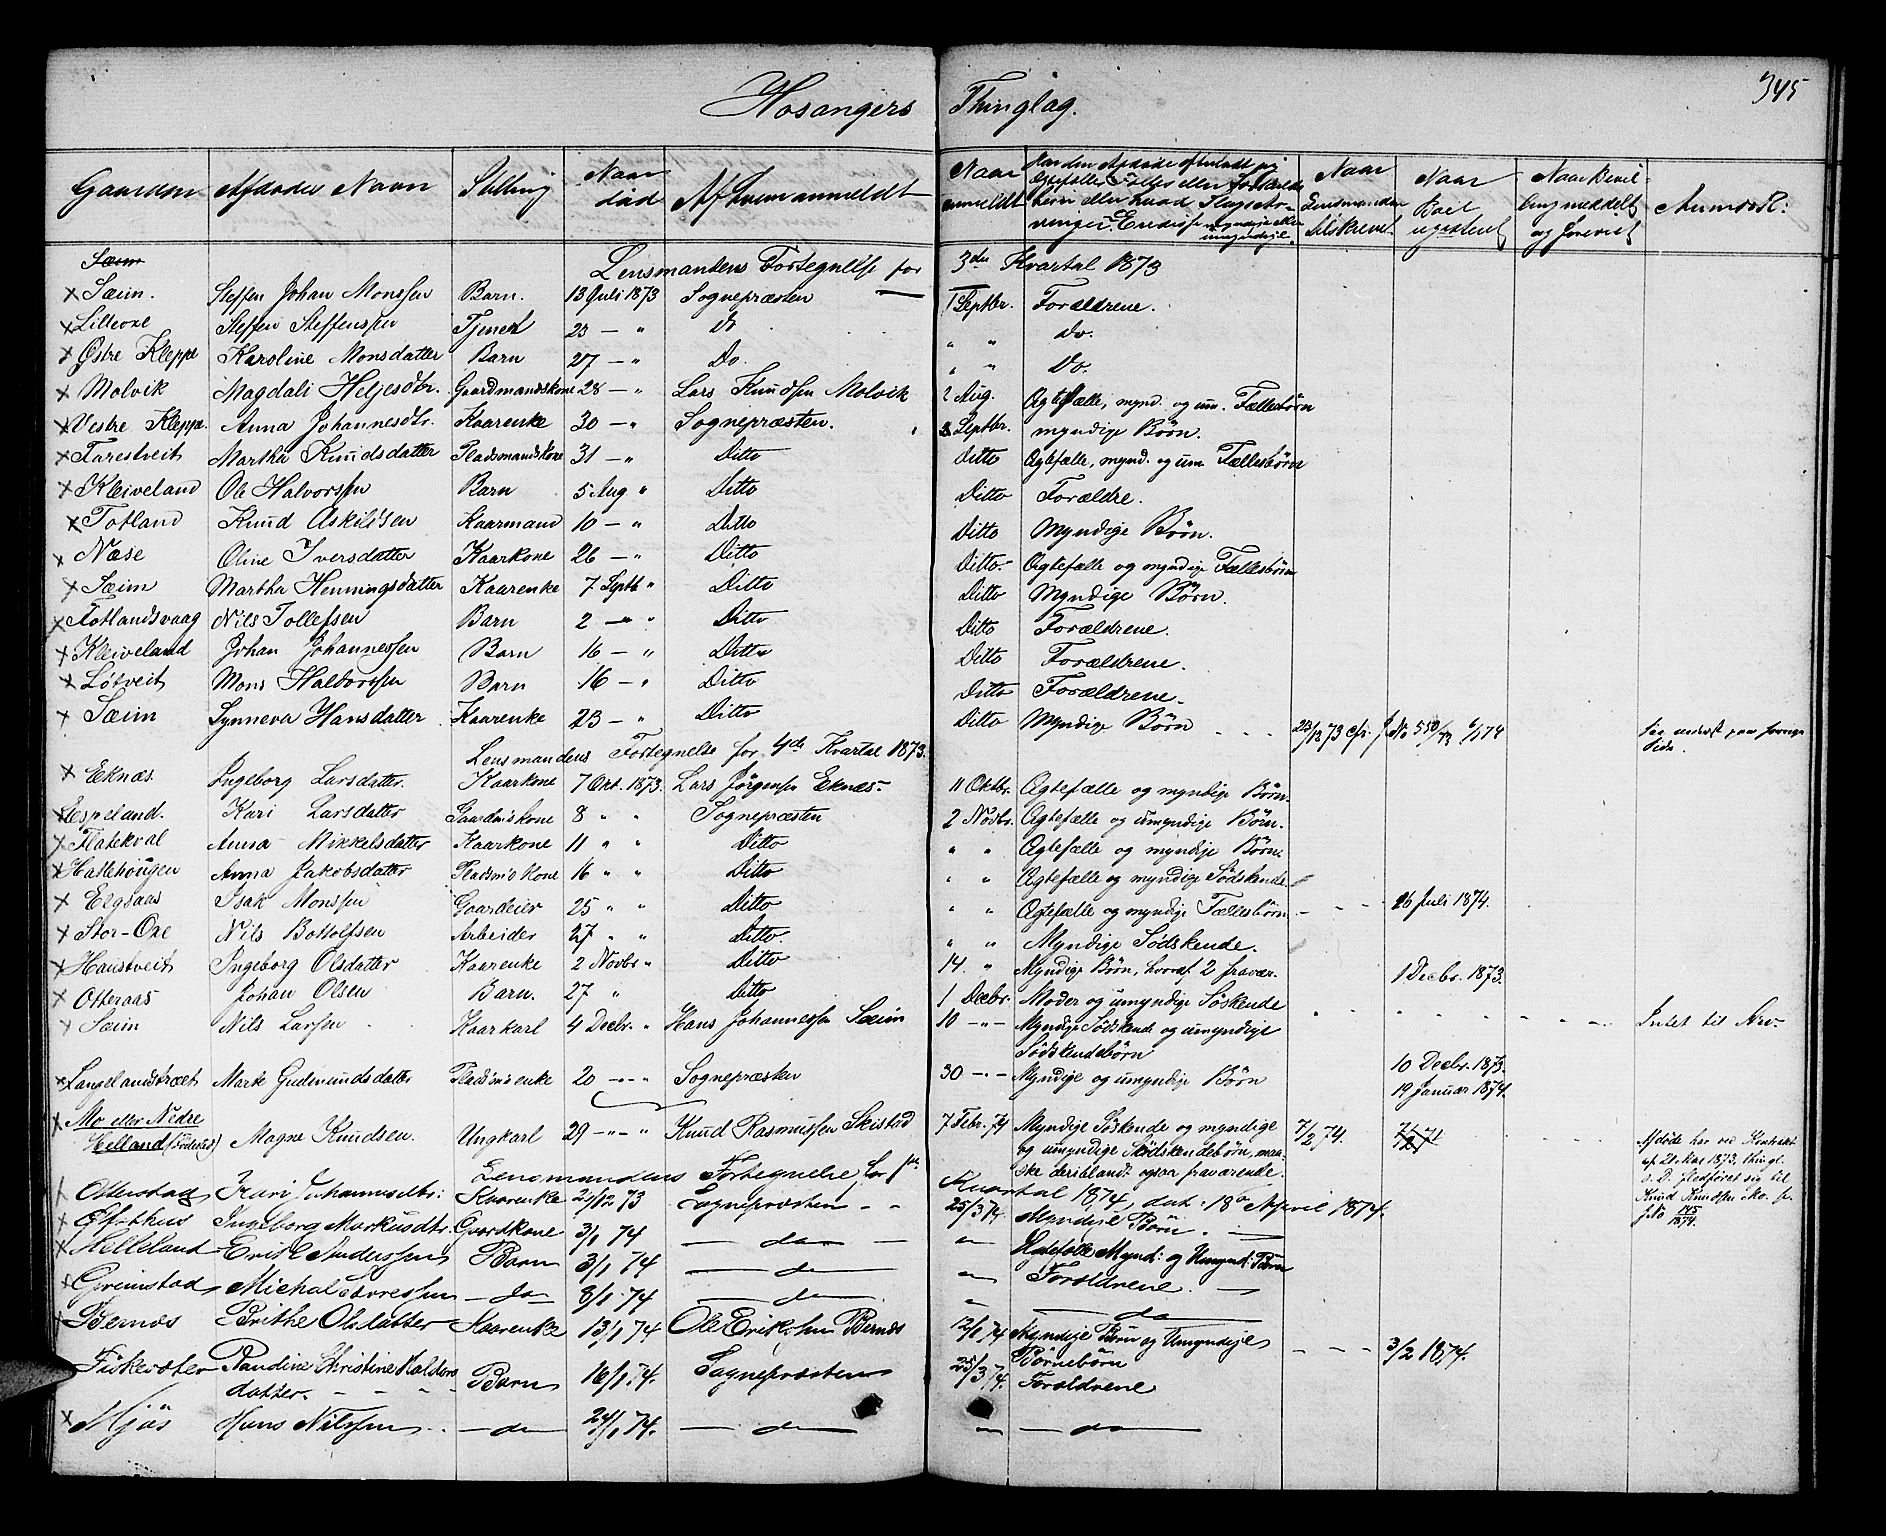 345
Hosangers Thinglag.
Gaardens Afdødes Navn Stilling Naar død Af hvem anmeldt Naar anmeldt Har den Afdøde efterladt sig Ægtefælle, Fælles eller Særskilte børn eller hvad Slags Arvinger. Ere disse myndige eller umyndige. Naar Lensmanden tilskrevet Naar Boet registeret Naar Bevilling meddelt og forevist Anmærk:
Sæim
Lensmandens Fortegnelse for 3die Kvartal 1873
x Sæim. Steffen Johan Monssen Barn. 13 Juli 1873 Sognepræsten 1 Septbr. Forældrene.
x Lilleoxe Steffen Steffensen Tjenest 23 — " Do " " Do.
x Østre Kleppe Karoline Monsdatter Barn 27 — " Do. " " Do.
x Molvik Magdali Heljesdtr. Gaardmandskone 28 — " Lars Knudsen Molvik 2 Aug. Ægtefælle, mynd. og um. Fællesbørn
x Vestre Kleppe. Anna Johannesdtr. Kaarenke 30 — " Sognepræsten. 3 Septbr. myndige Børn.
x Farestveit Martha Knudsdatter Pladsmandskone 31 — " Ditto Ditto Ægtefælle, mynd. og um. Fællesbørn
x Kleiveland Ole Halvorssen Barn 5 Aug " Ditto Ditto Forældre.
x Totland Knud Askildsen Kaarmand 10 — " Ditto Ditto Myndige Børn.
x Næse Oline Iversdatter Kaarkone 26 — " Ditto Ditto Ægtefælle og myndige Fællesbørn
x Sæim Martha Henningsdatter Kaarenke 7 Septb " Ditto Ditto Myndige Børn.
x Totlandsvaag Nils Tollefsen Barn 2 — " Ditto Ditto Forældrene.
x Kleiveland Johan Johannessen Barn 16 — " Ditto Ditto Forældrene.
x Løtveit Mons Halvorssen Barn 16 — " Ditto Ditto Forældrene.
x Sæim Synneva Hansdatter Kaarenke 23 — " Ditto Ditto Myndige Børn 23/12 73 cfr. J No 550/73 6/1 74 Saa underst paa forrige Side.
Lensmandens Fortegnelse for 4de Kvartal 1873.
x Eknæs. Ingeborg Larsdatter. Kaarkone 7 Okt. 1873. Lars Jørgensen Eknæs- 11 Oktbr. Ægtefælle og myndige Børn.
x Espeland. Kari Larsdatter Gaardm's kone 8 " " Sognepræsten 2 Novbr. Ægtefælle og umyndige Børn.
x Flatekval Anna Mikkelsdatter Kaarkone 11 " " Ditto " " Ægtefælle og myndige Børn.
x Hallehougen Anna Jakobsdatter Pladsm's kone 16 " " Ditto " " Ægtefælle og myndige Sødskende
x Elgsaas Isak Monssen Gaardeier 25 " " Ditto " " Ægtefælle og myndige Fællesbørn 26 Juli 1874.
x Stor-Oxe Nils Botolfsen Arbeider 27 " " Ditto. " " Myndige Sødskende.
x Haustveit Ingeborg Olsdatter Kaarenke 2 Novbr " Ditto 14. " Myndige Børn, hvoraf 2 fravær. 1 Decbr. 1873.
x Otteraas Johan Olsen Barn. 27 " Ditto 1 Decbr. Moder og umyndige Søskende
x Sæim Nils Larsen Kaarkarl 4 Decbr. " Hans Johannessen Sæim 10 -"- Myndige Sødskende og umyndige Sødskendebørn Intet til Arv.
x Langelandstræet Marte Gudmundsdatter Pladsm's enke 20 -"- " Sognepræsten 30 -"- Myndige og umyndige Børn 10 Decbr. 1873. 19 Januar 1874.
x Mo eller Nedre Helland (Sødenes) Magne Knudsen. Ungkarl 29 -"- " Knud Rasmussen Skistad 7 Febr. 74 Myndige Søskende og myndige og umyndige Skødskendebørn, maaske deriblandt ogsaa fraværende. 7/2 74. 7/2 74 Afdøde har ved Kontrakt af 21 Mai 1873, thingl. s. D. fledføret sig til Knud Knudsen Mo. fr. J No 145/1874.
Lensmandens Fortegnelse for 1ste Kvartal 1874, dat: 18de April 1874.
x Otterstad Kari Johannesdtr: Kaarenke 22/12 73 Sognepræsten 25/3 74. Myndige Børn.
x Øfsthus Ingeborg Markusdtr. Gaardkone 3/1 74 — do — — " — Ægtefælle Mynd: og Umynd: Børn
x Helleland Erik Anderssen Barn 3/1 74 — do — — " — Forældrene.
x Greimstad Michal Larssen — do — 8/1 74 — do — — " — — do —
x Bernæs Brithe Olsdatter Kaarenke 13/1 74 Ole Eriksen Bernæs 12/1 74 Myndige Børn og Umyndige Børnebørn 3/2 1874.
Fiskesæter Randine Christine Haldorsdatter. Barn 16/1 74. Sognepræsten 25/3 74. Forældrene
x Mjøs Hans Nilssen — do — 24/1 74. — do — — " — — do —